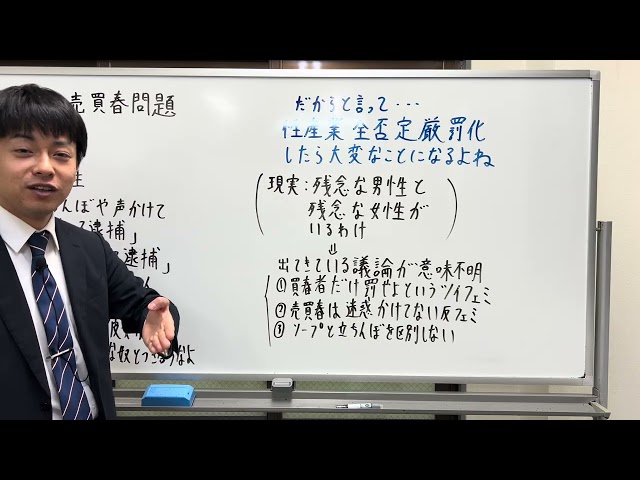 売買春問題
んぼや声かけて
逮捕」
逮捕」
な奴とつきあうなよ
だからと言って・・・
性産業全否定厳罰化
したら大変なことになるよね
(現実:残念な男性と
残念な女性が
いるわけ)
⇓
出てきている議論が意味不明
①買春者だけ罰やよというツイフェミ
②売買春は迷惑かけてない反フェミ
③ソープと立ちんぼを区別しない